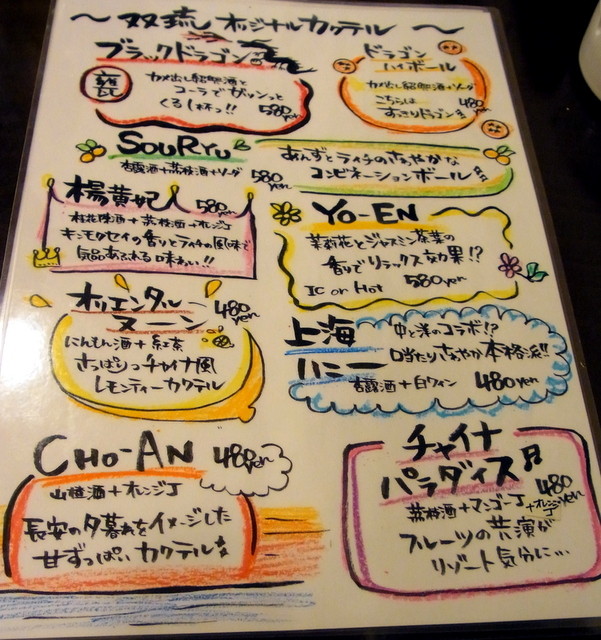 ～双琉 オリジナルカクテル～
ブラックドラゴン
甕
カメ出し紹興酒と
コーラでガツンっと
くる1杯っ!! 580yen
ドラゴン
ハイボール
カメ出し紹興酒+ソーダ
こちらは 480yen
すっきりドラゴン
SOURYU
杏露酒+茘枝酒+ソーダ 580yen
あんずとライチのさわやかな
コンビネーションボール
楊貴妃 580yen
桂花陳酒+茘枝酒+オレンジJ
キンモクセイの香りとライチの風味で
気品あふれる味わい!!
YO-EN
茉莉花とジャスミン茶葉の
香りでリラックス効果!?
ICE or Hot 580yen
オリエンタル
ヌーン 480yen
にんもん酒+紅茶
さっぱりっチャイナ風
レモンティーカクテル
上海
ハニー
中と洋のコラボ!?
口当たりさわやか本格派!!
杏露酒+白ワイン 480yen
CHO-AN 480yen
山樝酒+オレンジJ
長安の夕暮れをイメージした
甘ずっぱいカクテル
チャイナ
パラダイス
480yen
茘枝酒+マンゴーJ+オレンジJ
フルーツの共演が
リゾート気分に…